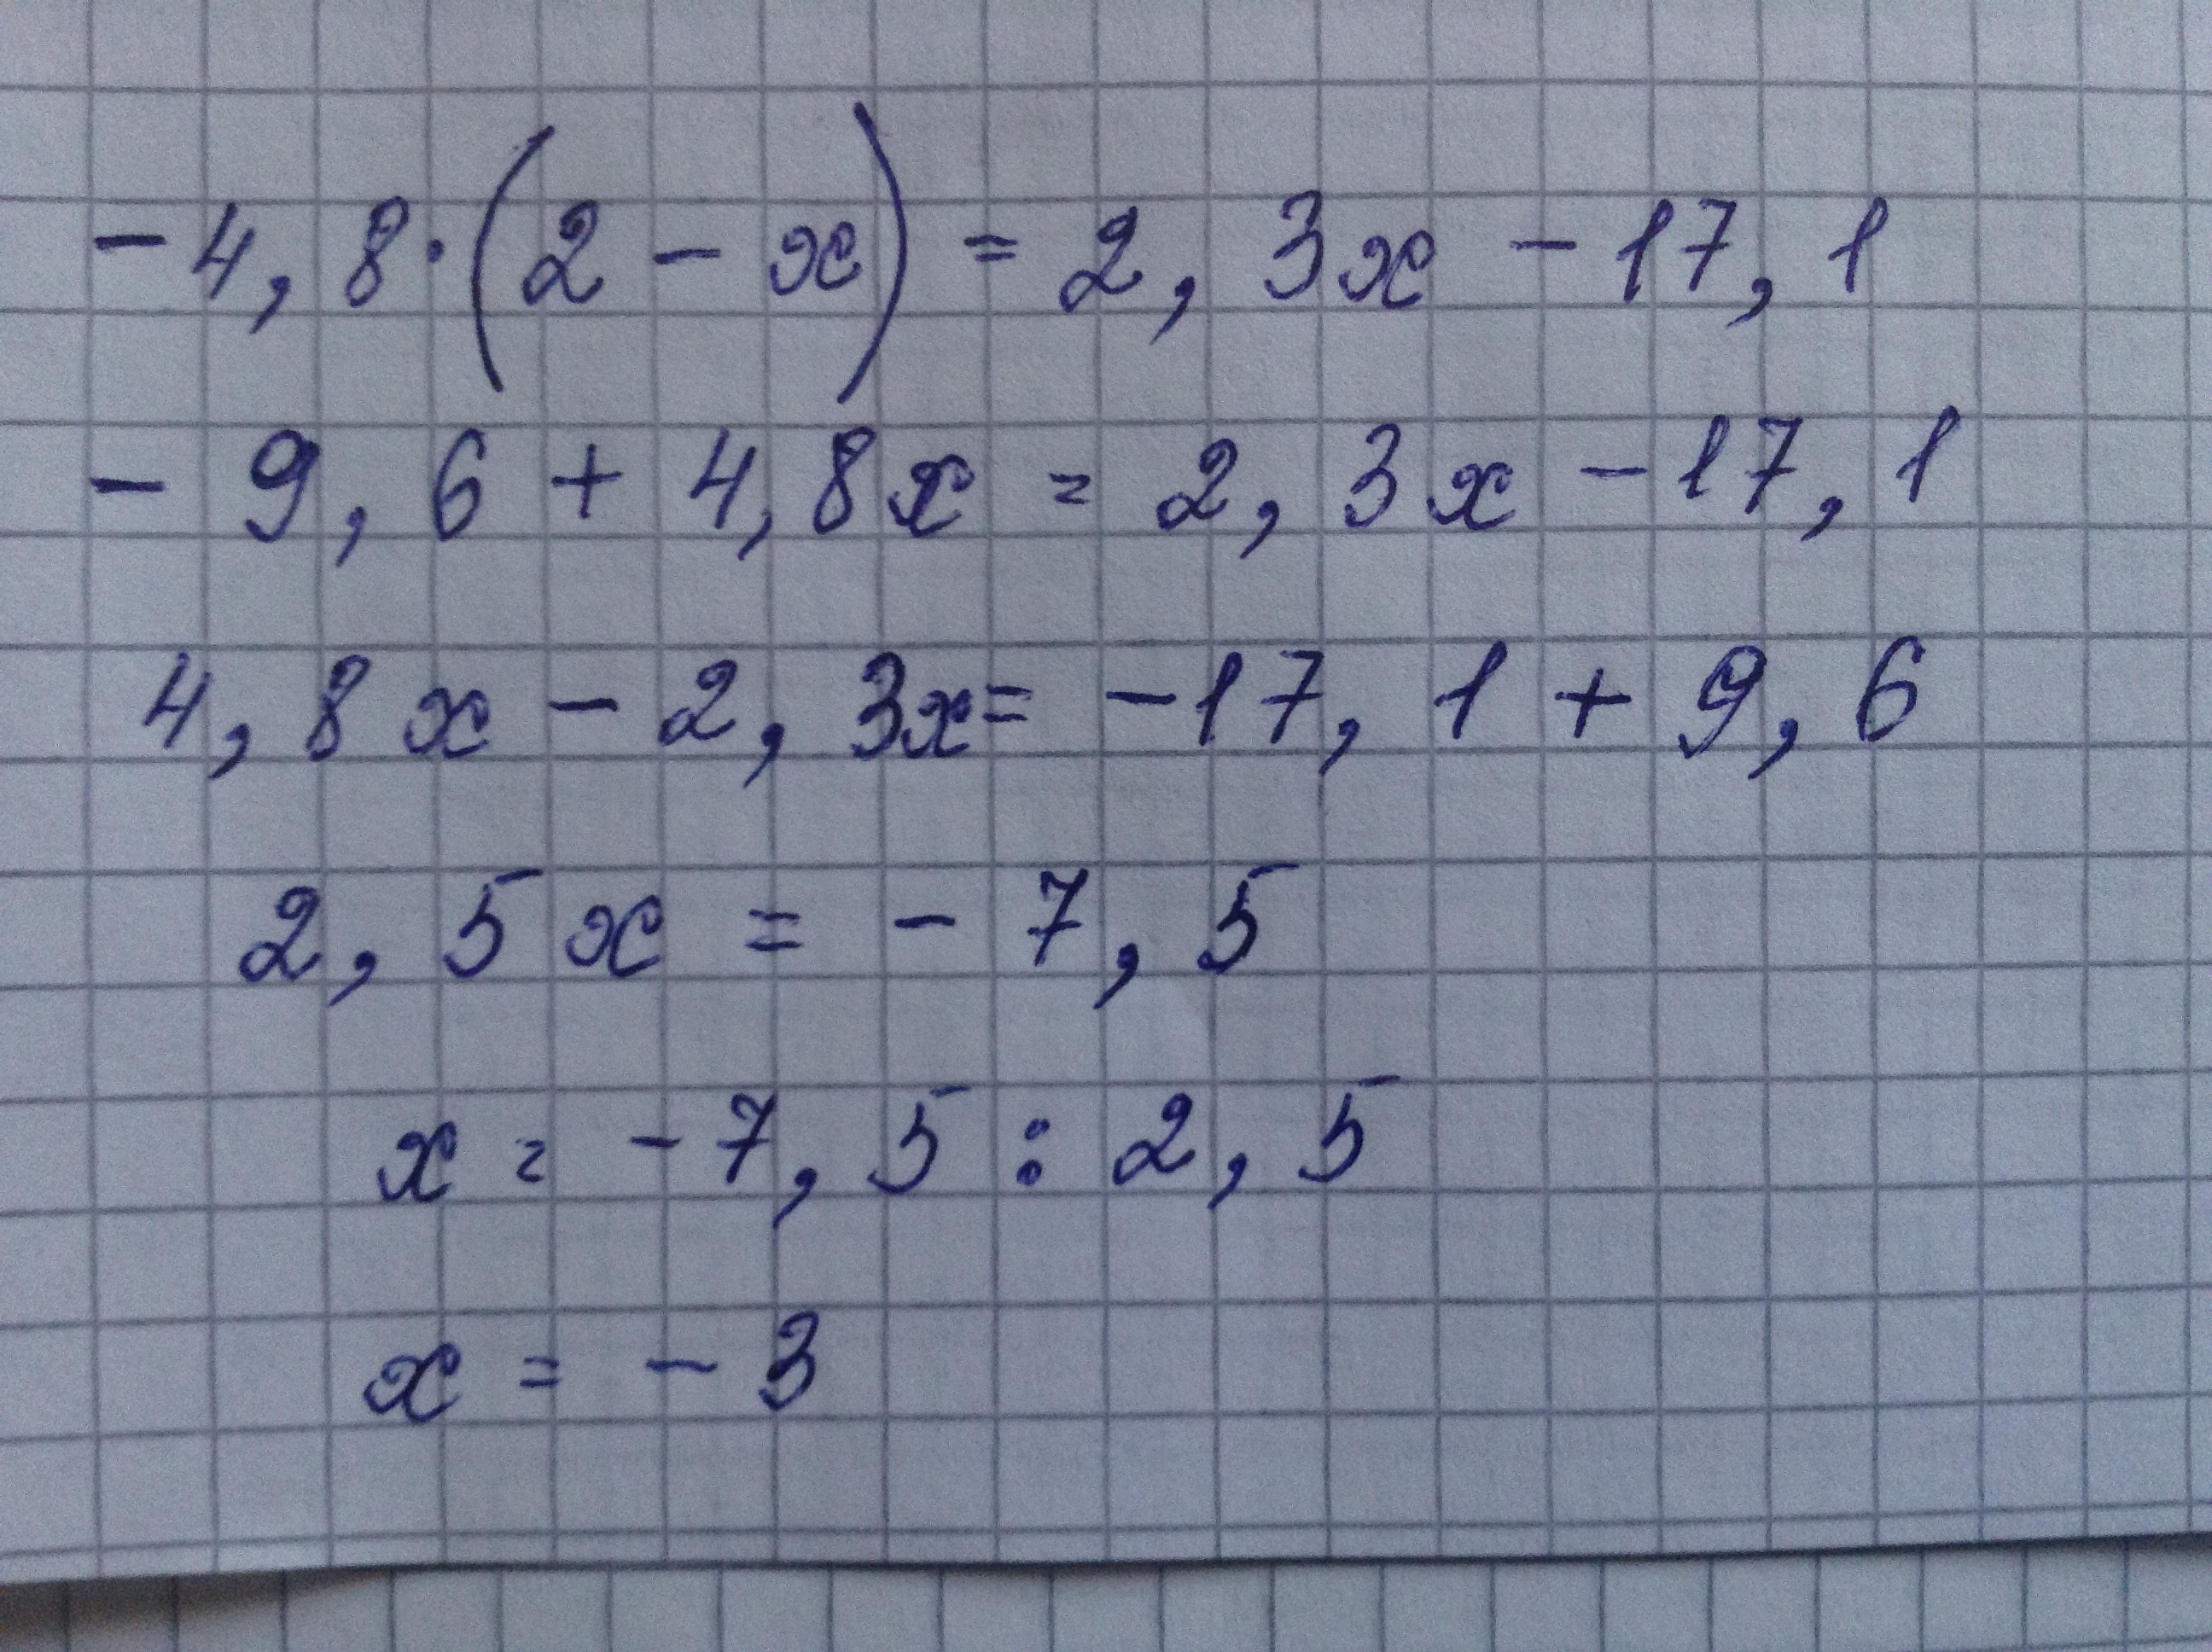 -4,8·(2-x)=2,3x-17,1
-9,6+4,8x=2,3x-17,1
4,8x-2,3x=-17,1+9,6
2,5x=-7,5
x=-7,5:2,5
x=-3